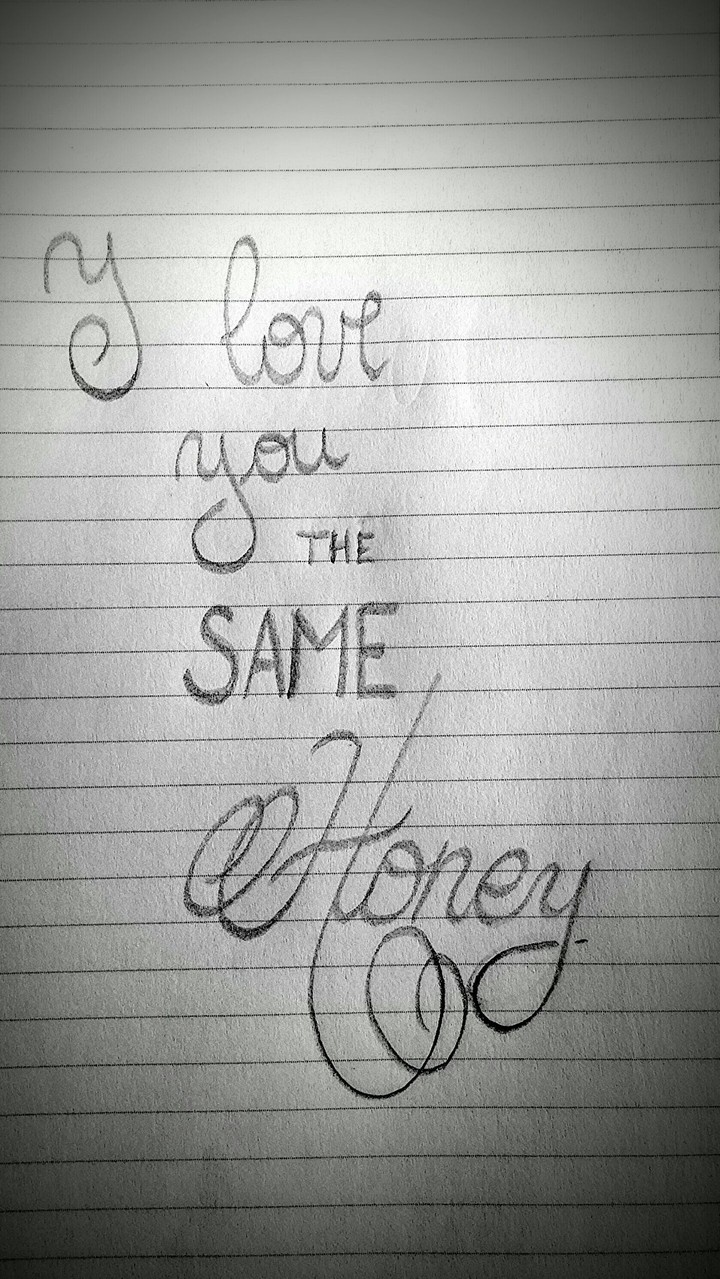 I love
you
THE
SAME
Honey